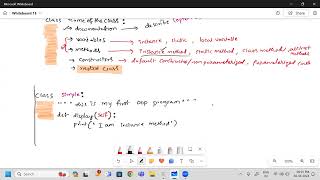 Microsoft Whiteboard
Whiteboard 11
Class Name of the Class :
→ documentation → describe
→ variables → instance, static, local variable
→ methods → Instance method, static method, class method/ abstract methods
→ constructors → default Constructor/non parameterized, parameterized
→ nested class
Class Simple:
""" this is my first oop program """
def display(self):
print("I am instance method")